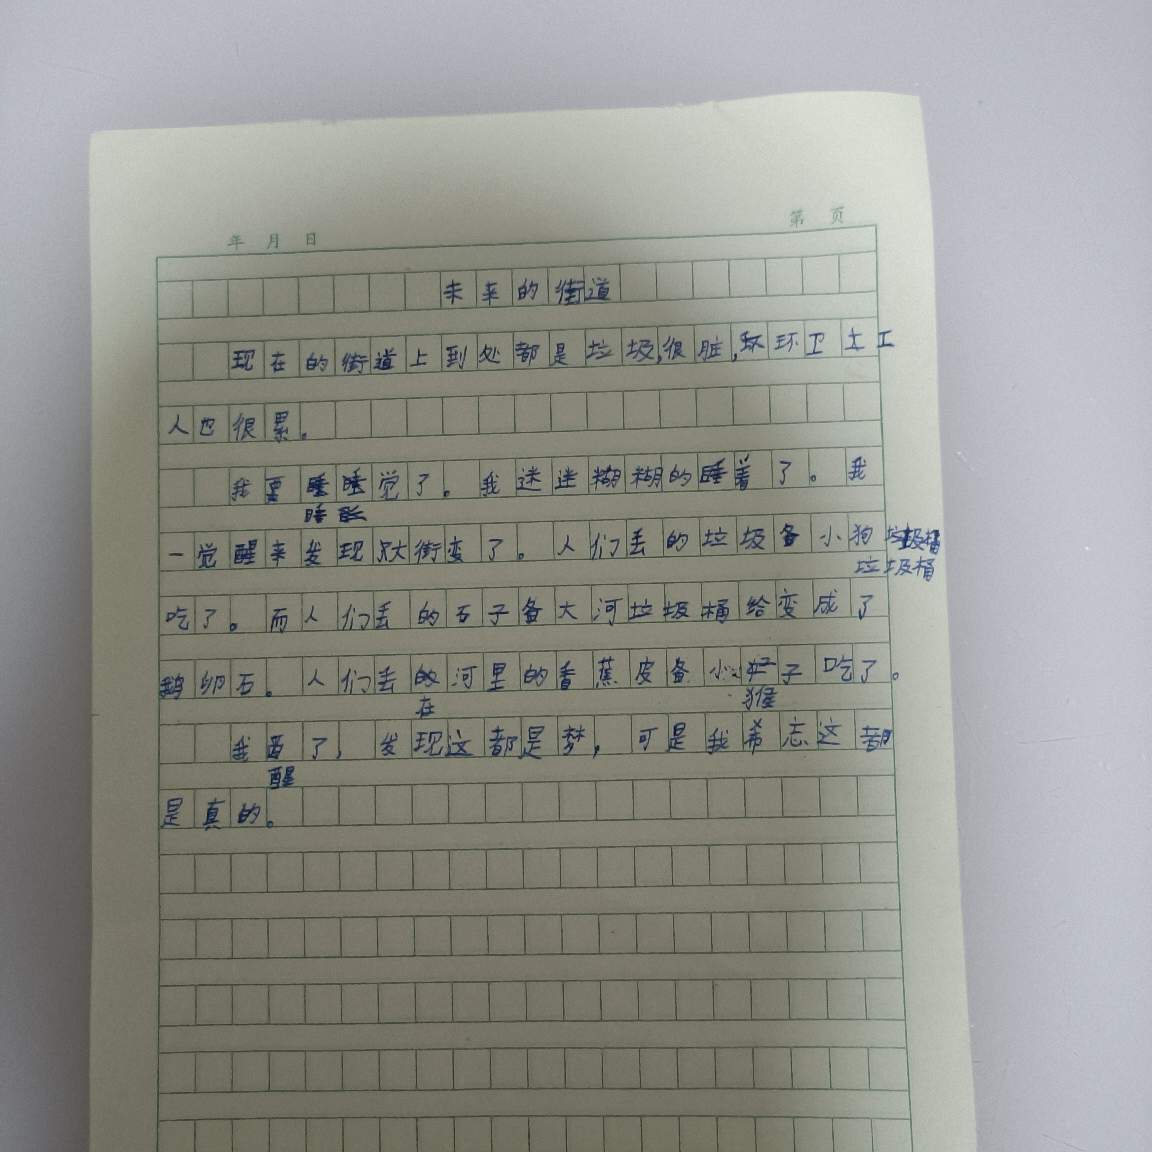 第 页
年 月 日
未来的街道
现在的街道上到处都是垃圾,很脏,环环卫士工
人也很累。
我要睡睡觉了。我迷迷糊糊的睡着了。我
睡
一觉醒来发现大街变了。人们丢的垃圾备小狗垃圾桶
垃圾桶
吃了。而人们丢的石子备大河垃圾桶给变成了
鹅卵石。人们丢的河里的香蕉皮备小子吃了。
在 猴
我酉了,发现这都是梦,可是我希忘这都
醒
是真的。